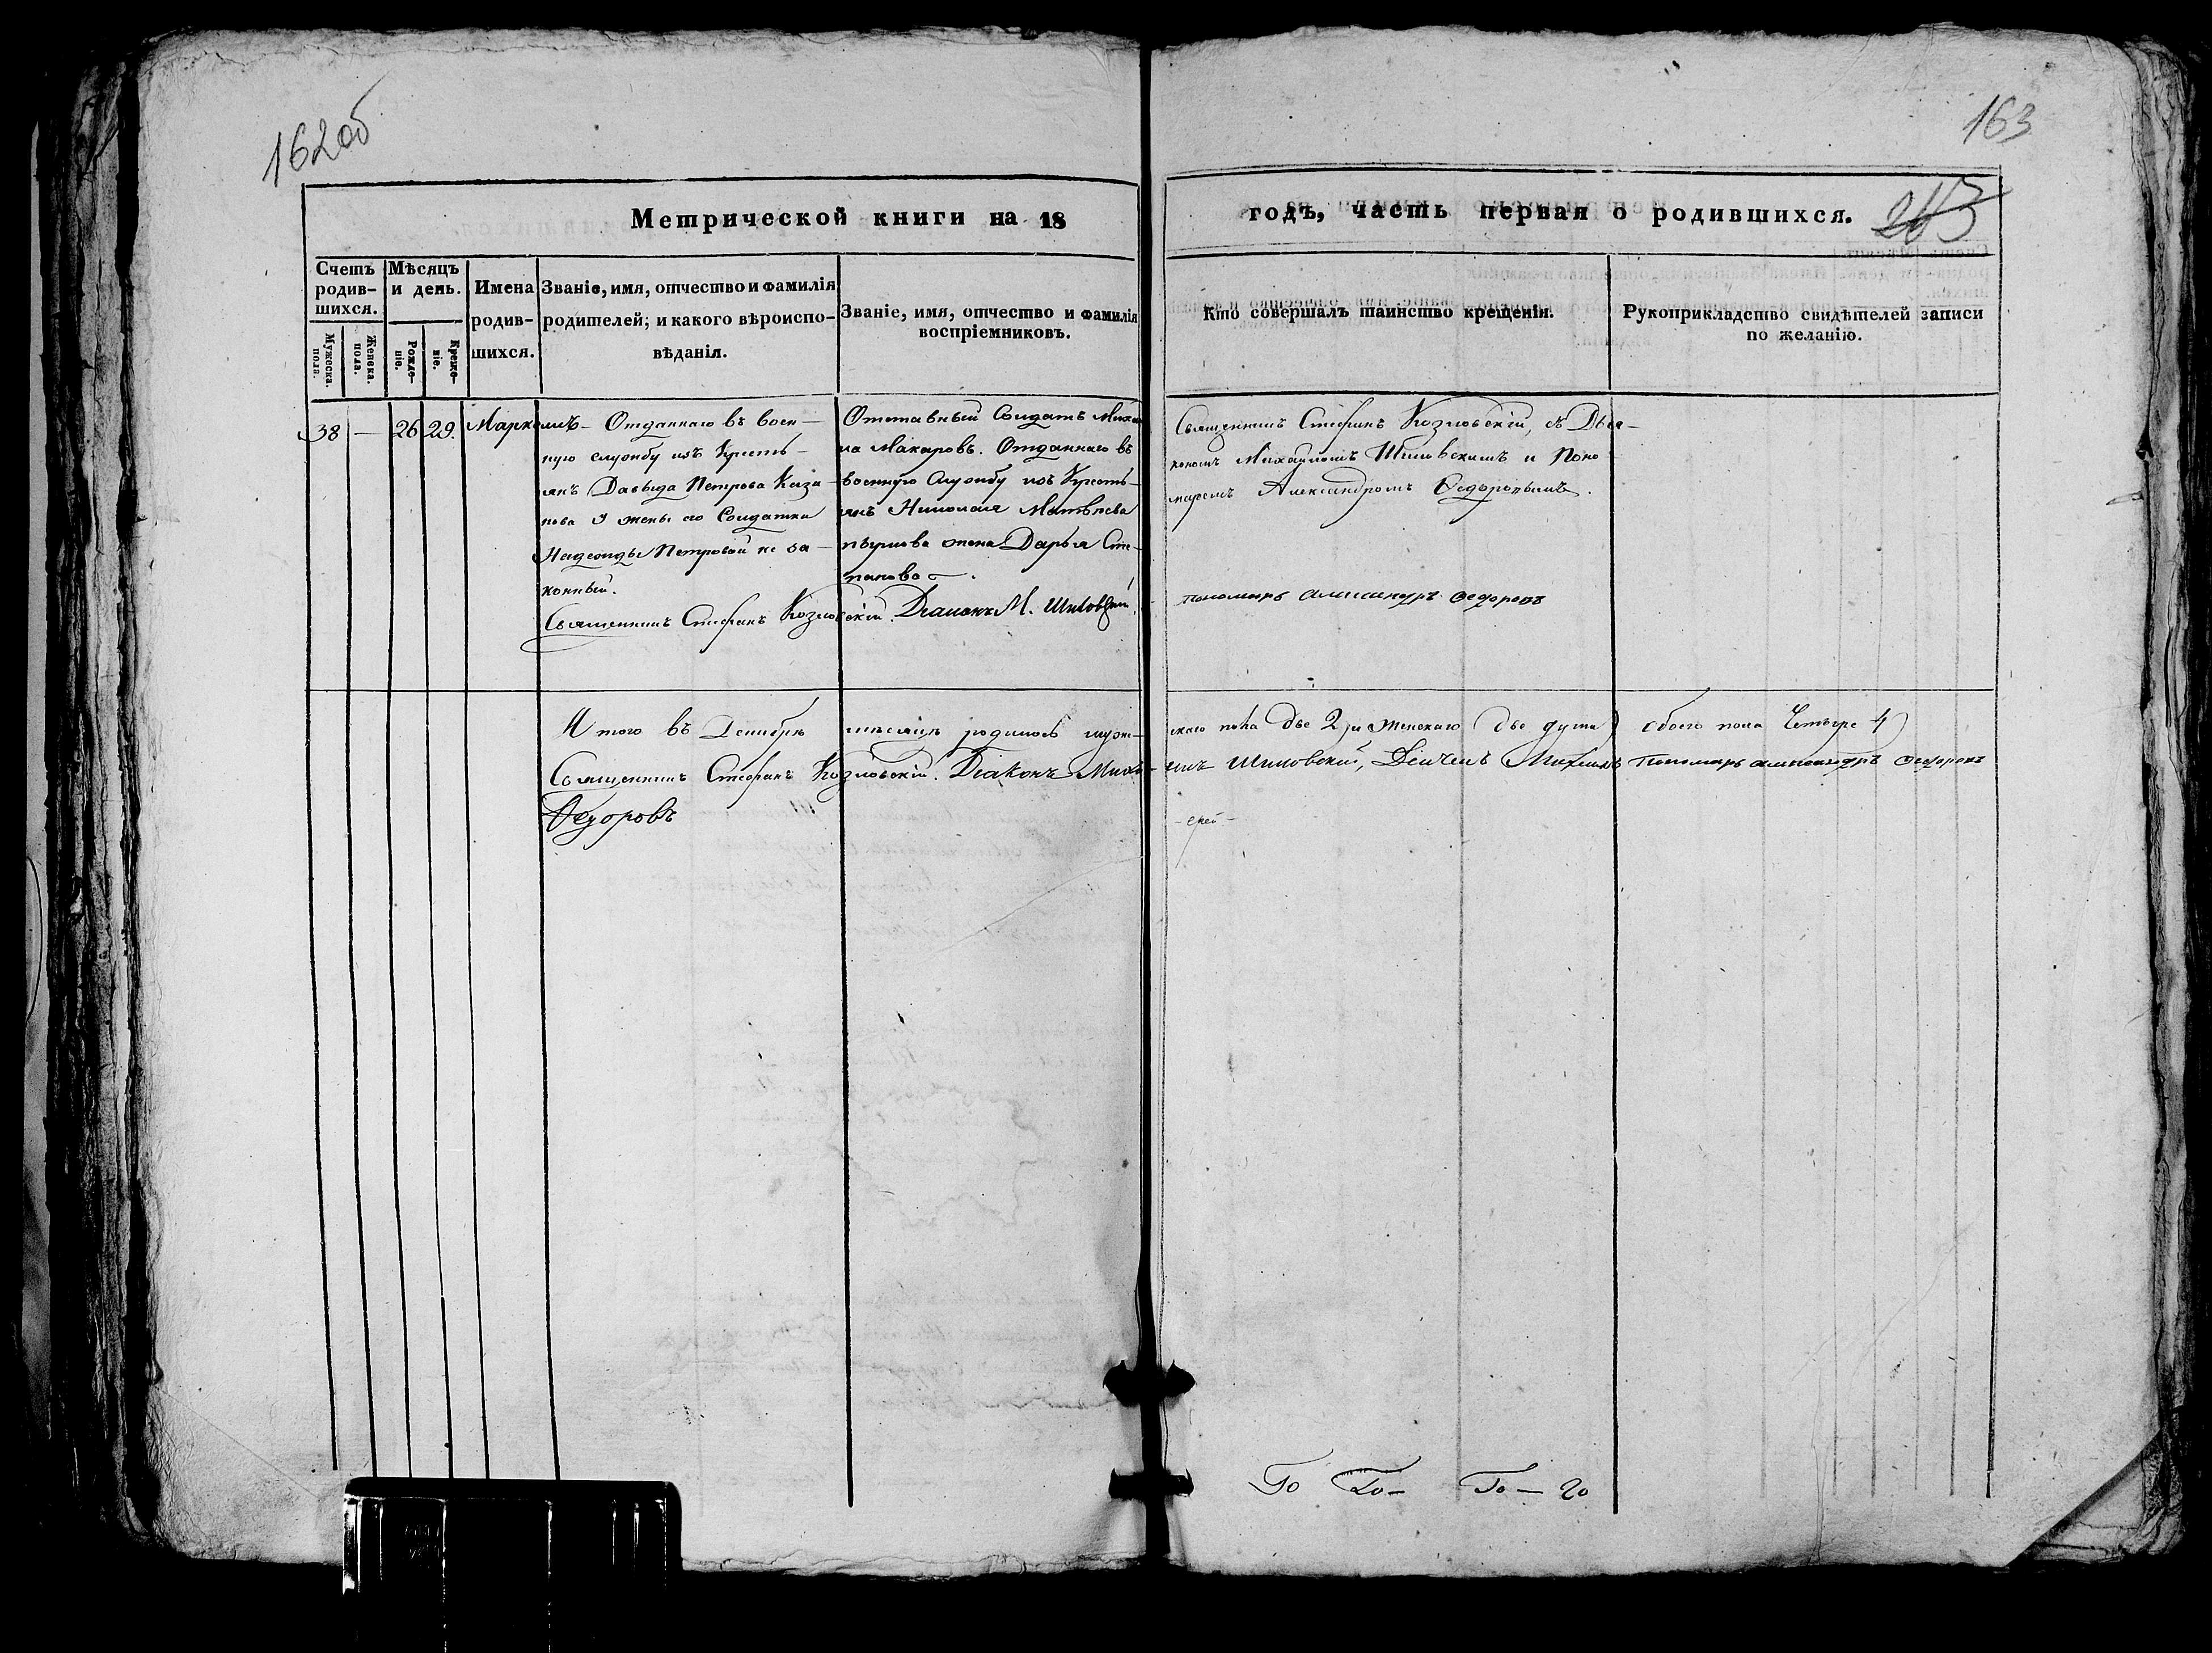 162об
163
Метрической книги на 18
годъ, часть первая о родившихся.
Счетъ родив-шихся.
Мужеска. пола.
Женска. пола.
Мѣсяцъ и день.
Рожде-ніе.
Креще-ніе.
Имена родив-шихся.
Званіе, имя, отчество и фамилія родителей; и какого вѣроиспо-вѣданія.
Званіе, имя, отчество и фамилія воспріемниковъ.
Кто совершалъ таинство крещенія.
Рукоприкладство свидѣтелей записи по желанію.
38 — 26 29. Маркелъ
Отданнаго въ воен-
ную службу изъ Кресть-
янъ Давыда Петрова
жены его Солдатки
Надежды Петровой не за-
конный.
Отставный Солдатъ Михаи-
ла Макаровъ. Отданнаго въ
военную Службу изъ Кресть-
янъ Николая Матвѣева
жена Дарья Сте-
панова.
Священникъ Стефанъ Козловскій. Діаконъ М. Шиловскій.
Священникъ Стефанъ Козловскій, съ Діа-
кономъ Михаиломъ Шиловскимъ и Поно-
маремъ Александромъ Федоровымъ.
пономарь александръ федоровъ
Итого въ Декабрѣ мѣсяцѣ родилось муже-
скаго пола две 2, и женскаго две души обоего пола Четыре 4
Священникъ Стефанъ Козловскій. Діаконъ Миха-
илъ Шиловскій, Пономарь александръ федоровъ
Федоровъ